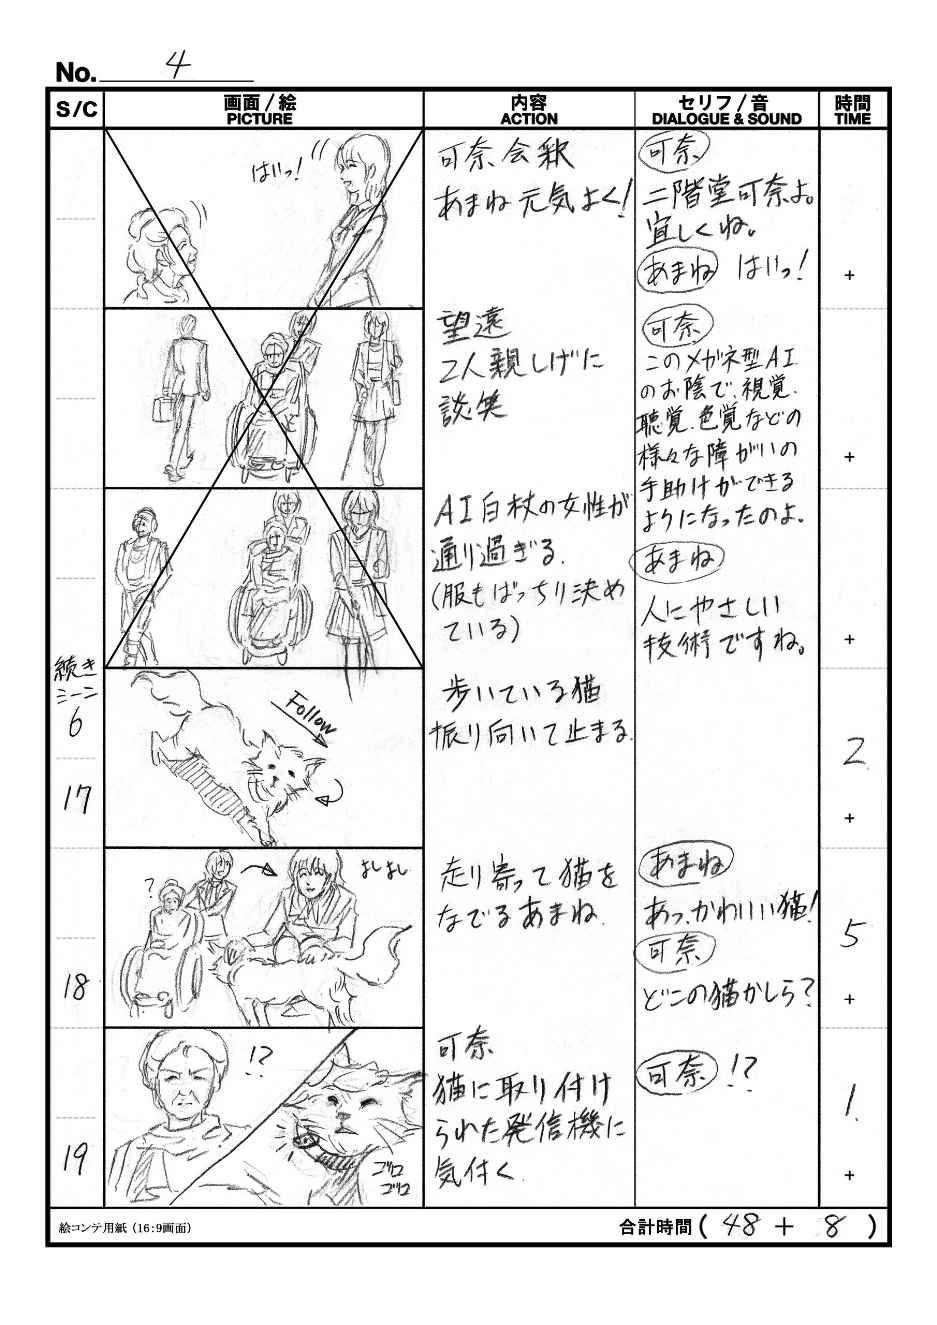 No. 4
S/C
画面/絵
PICTURE
内容
ACTION
セリフ/音
DIALOGUE & SOUND
時間
TIME
はいっ!
可奈会釈
あまね元気よく!
可奈
二階堂可奈よ。
宜しくね。
あまね はいっ!
+
望遠
2人親しげに
談笑
可奈
このメガネ型AI
のお陰で、視覚、
聴覚、色覚などの
様々な障がいの
手助けができる
ようになったのよ。
+
AI白杖の女性が
通り過ぎる.
(服もばっちり決め
ている)
あまね
人にやさしい
技術ですね。
+
続き
シーン
6
17
Follow
歩いている猫
振り向いて止まる.
2
+
18
?
よしよし
走り寄って猫を
なでるあまね.
あまね
あっ、かわいい猫!
可奈
どこの猫かしら?
5
+
19
!?
ゴロ
ゴロ
可奈
猫に取り付け
られた発信機に
気付く.
可奈 !?
1.
+
絵コンテ用紙(16:9画面)
合計時間 ( 48 + 8 )